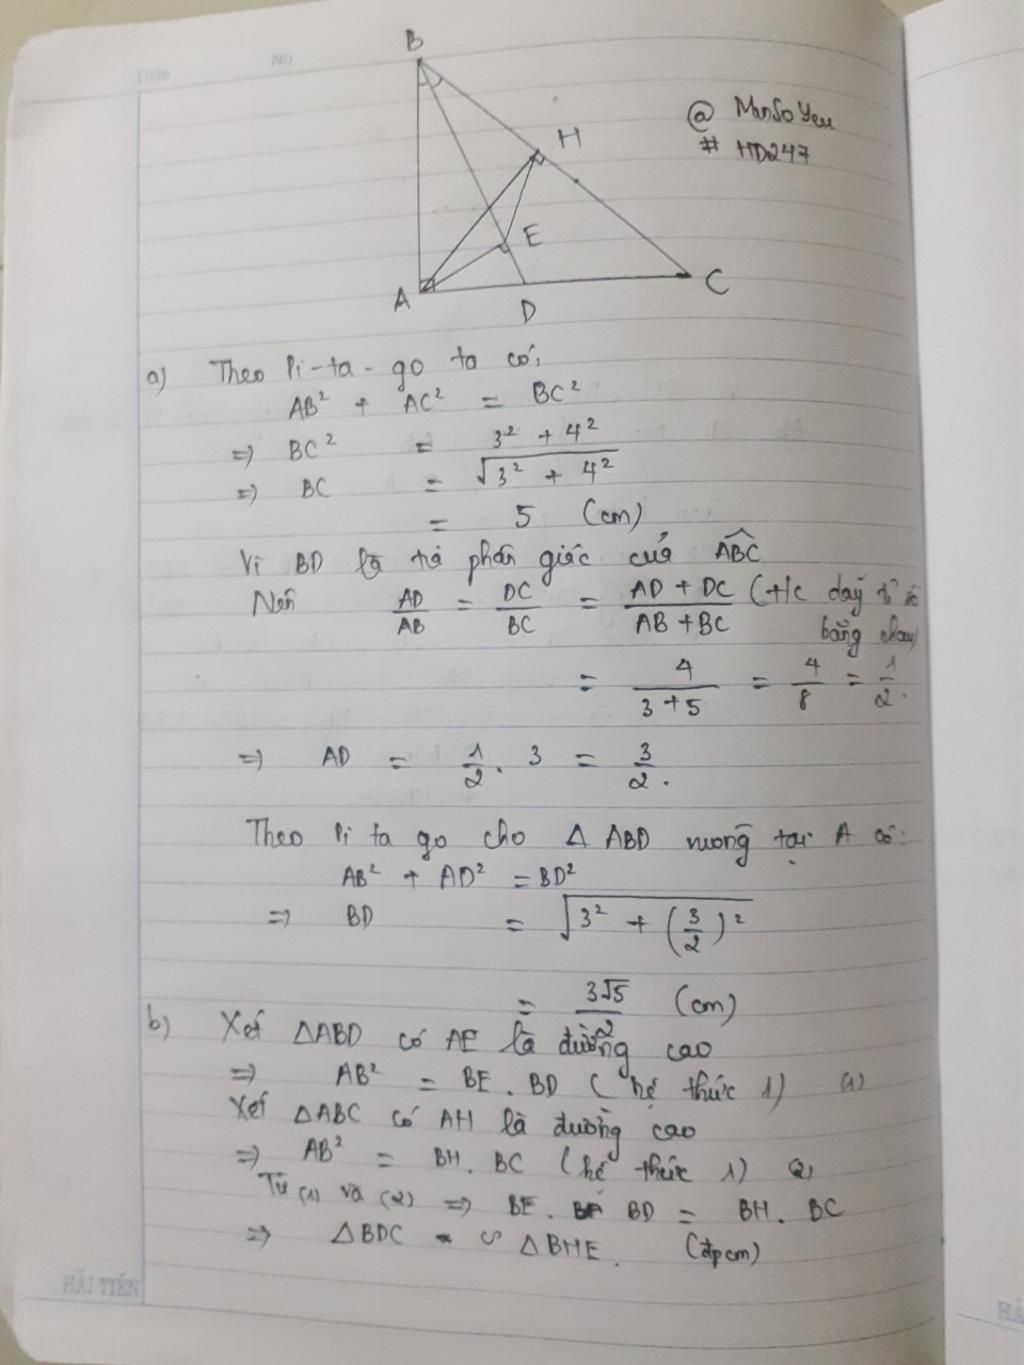 Date No
B
@ MunSoYeu
# HD247
H
E
A
D
C
a) Theo Pi-ta-go ta có:
AB² + AC² = BC²
=> BC² = 3² + 4²
=> BC = √(3² + 4²)
= 5 (cm)
Vì BD là tia phân giác của ABC
Nên AD/AB = DC/BC = (AD + DC)/(AB + BC) (t/c dãy tỉ số
bằng nhau)
= 4/(3+5) = 4/8 = 1/2.
=> AD = 1/2 . 3 = 3/2.
Theo Pi ta go cho Δ ABD vuông tại A có:
AB² + AD² = BD²
=> BD = √(3² + (3/2)²)
= 3√5/2 (cm)
b) Xét ΔABD có AE là đường cao
=> AB² = BE . BD (hệ thức 1) (1)
Xét ΔABC có AH là đường cao
=> AB² = BH . BC (hệ thức 1) (2)
Từ (1) và (2) => BE . BD = BH . BC
=> ΔBDC ∽ ΔBHE. (đpcm)
HẢI TIẾN
HẢ